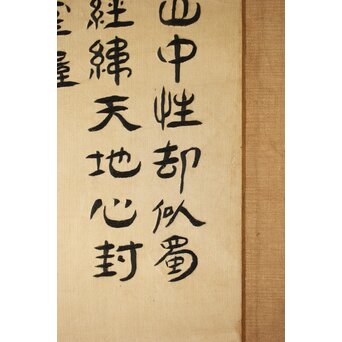 中性却似蜀
經緯天地心封